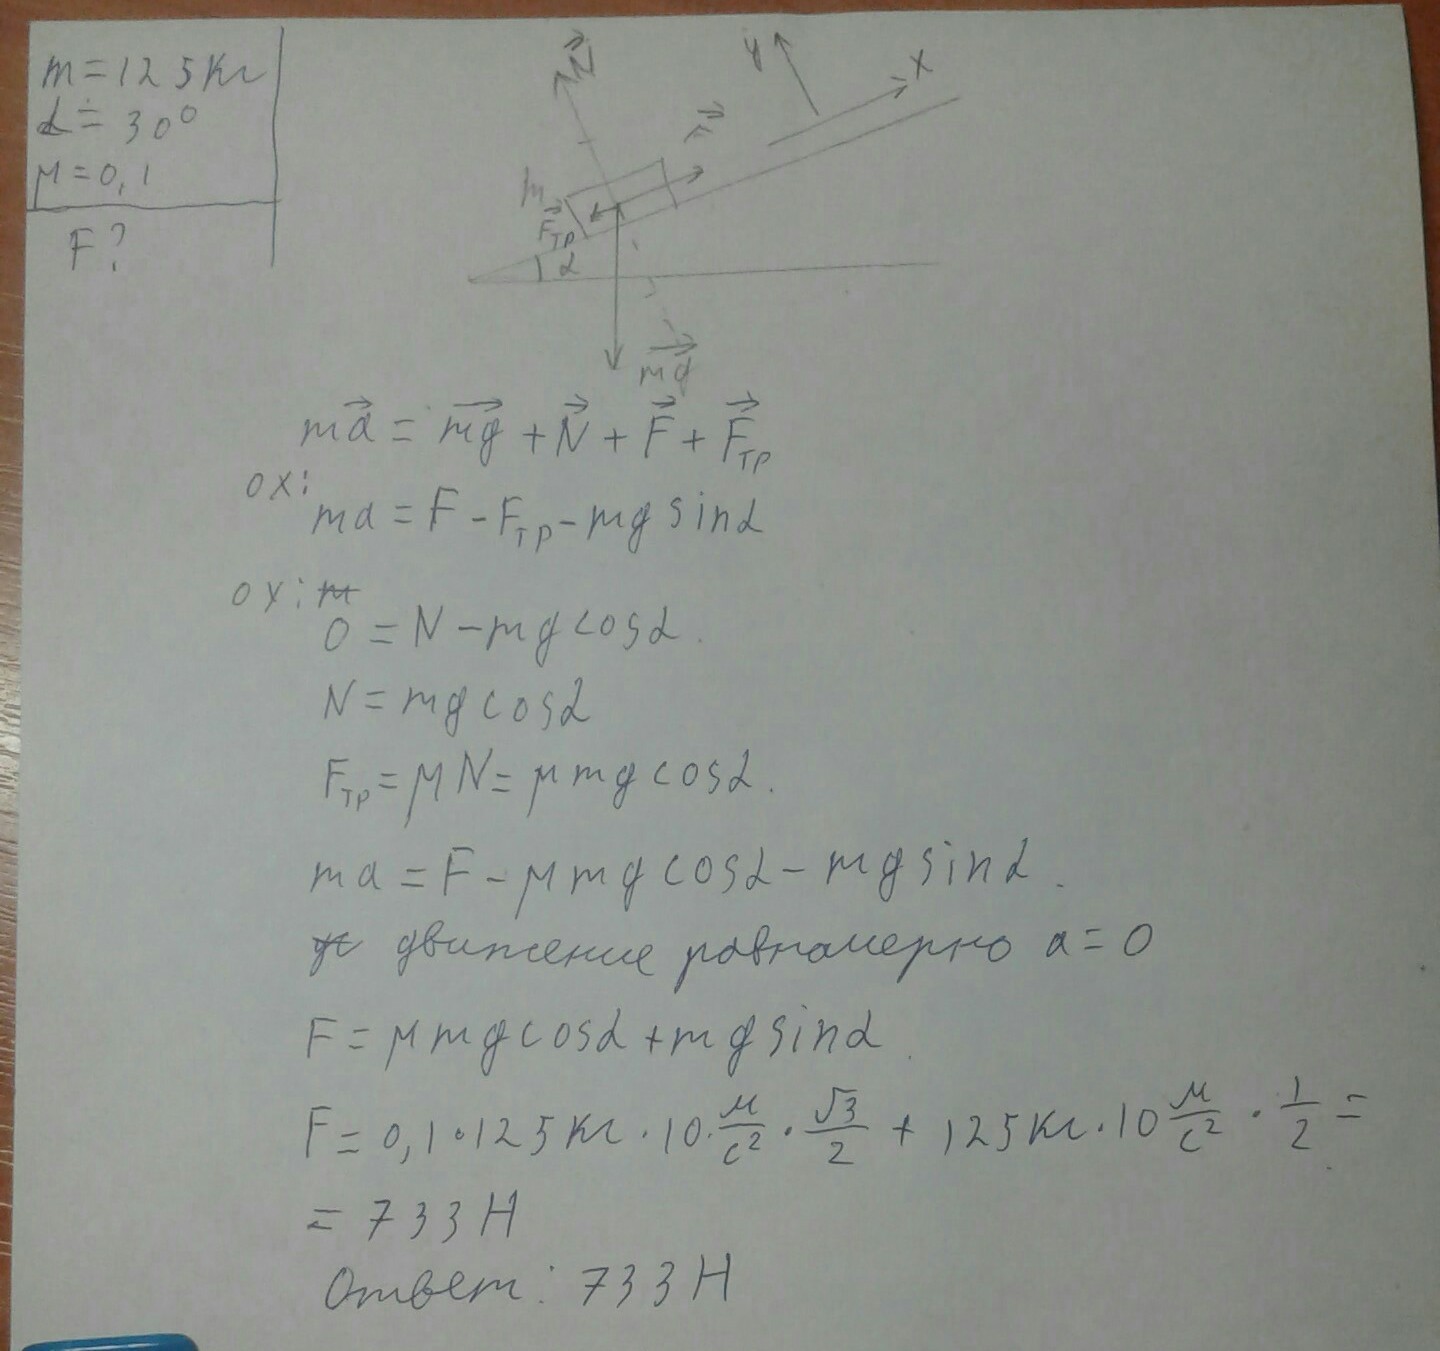 m = 125 кг
α = 30°
μ = 0,1
F?
N
y
x
F
m
Fтр
α
mg
ma = mg + N + F + Fтр
ox:
ma = F - Fтр - mg sinα
oy: m
0 = N - mg cosα.
N = mg cosα
Fтр = μN = μmg cosα.
ma = F - μmg cosα - mg sinα.
движение равномерно a = 0
F = μmg cosα + mg sinα.
F = 0,1 · 125 кг · 10 м/с² · √3/2 + 125 кг · 10 м/с² · 1/2 =
= 733 Н
Ответ: 733 Н